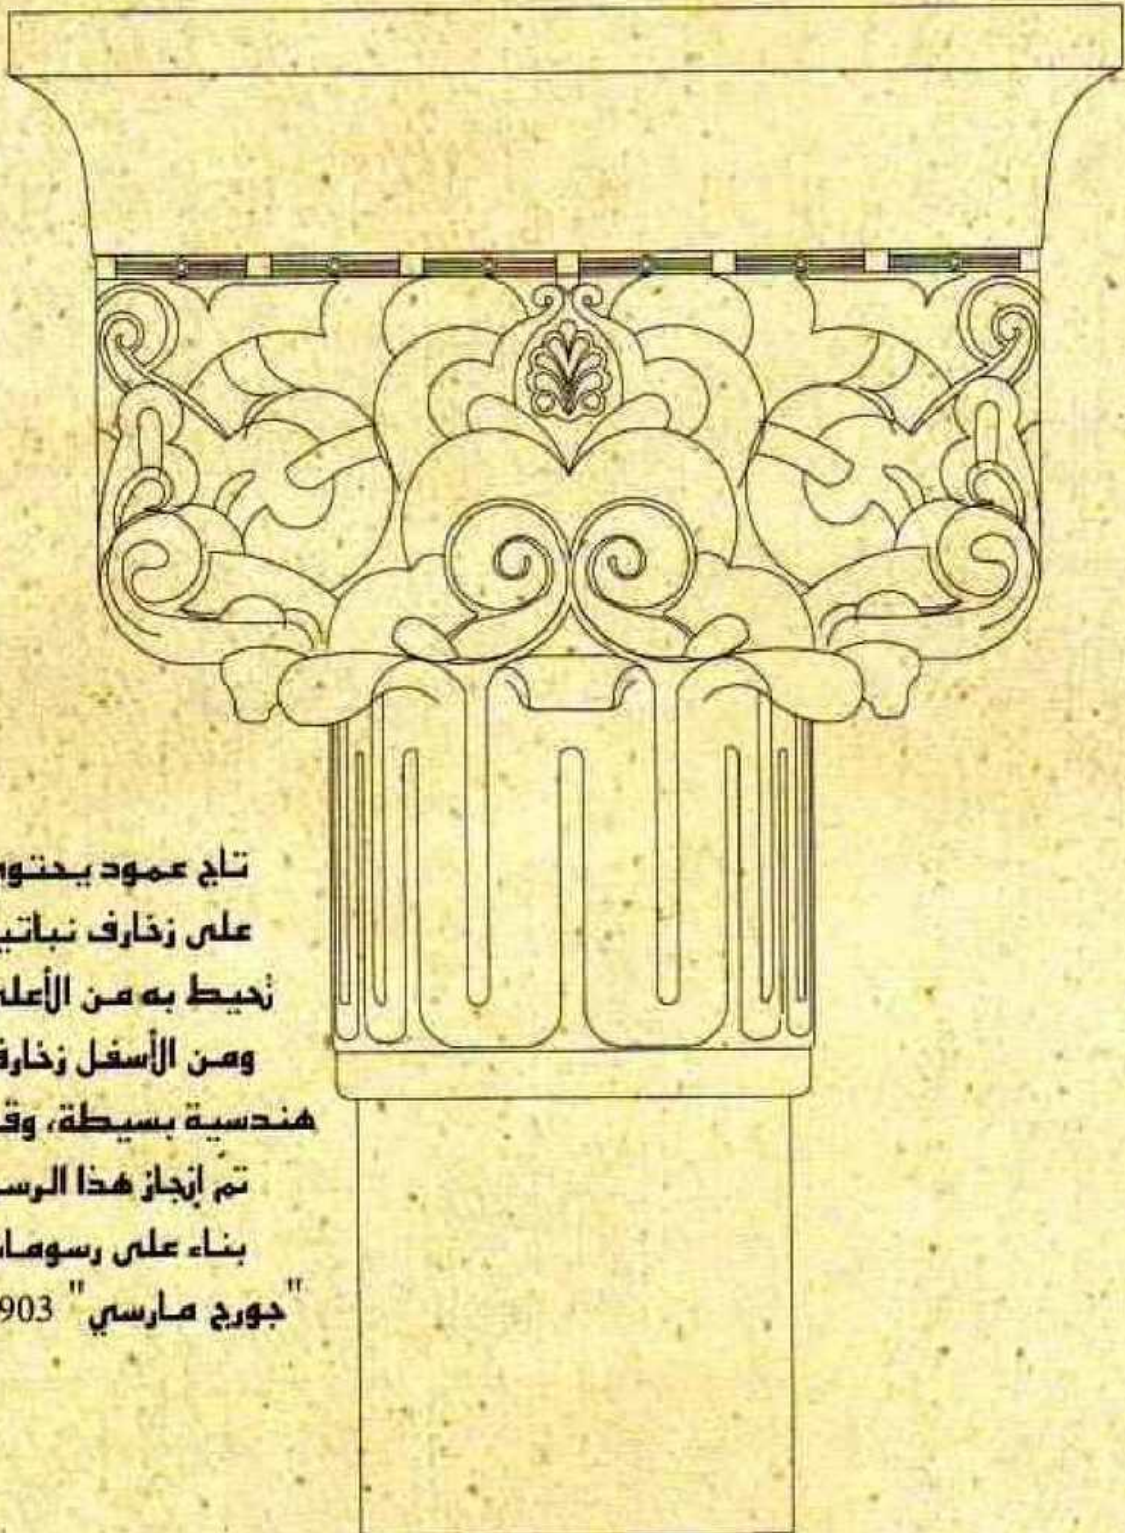 تاج عمود يحتو
على زخارف نباتي
تُحيط به من الأعل
ومن الأسفل زخار
هندسية بسيطة، وق
تمّ إنجاز هذا الرس
بناء على رسوما
"جورج مارسي" 903